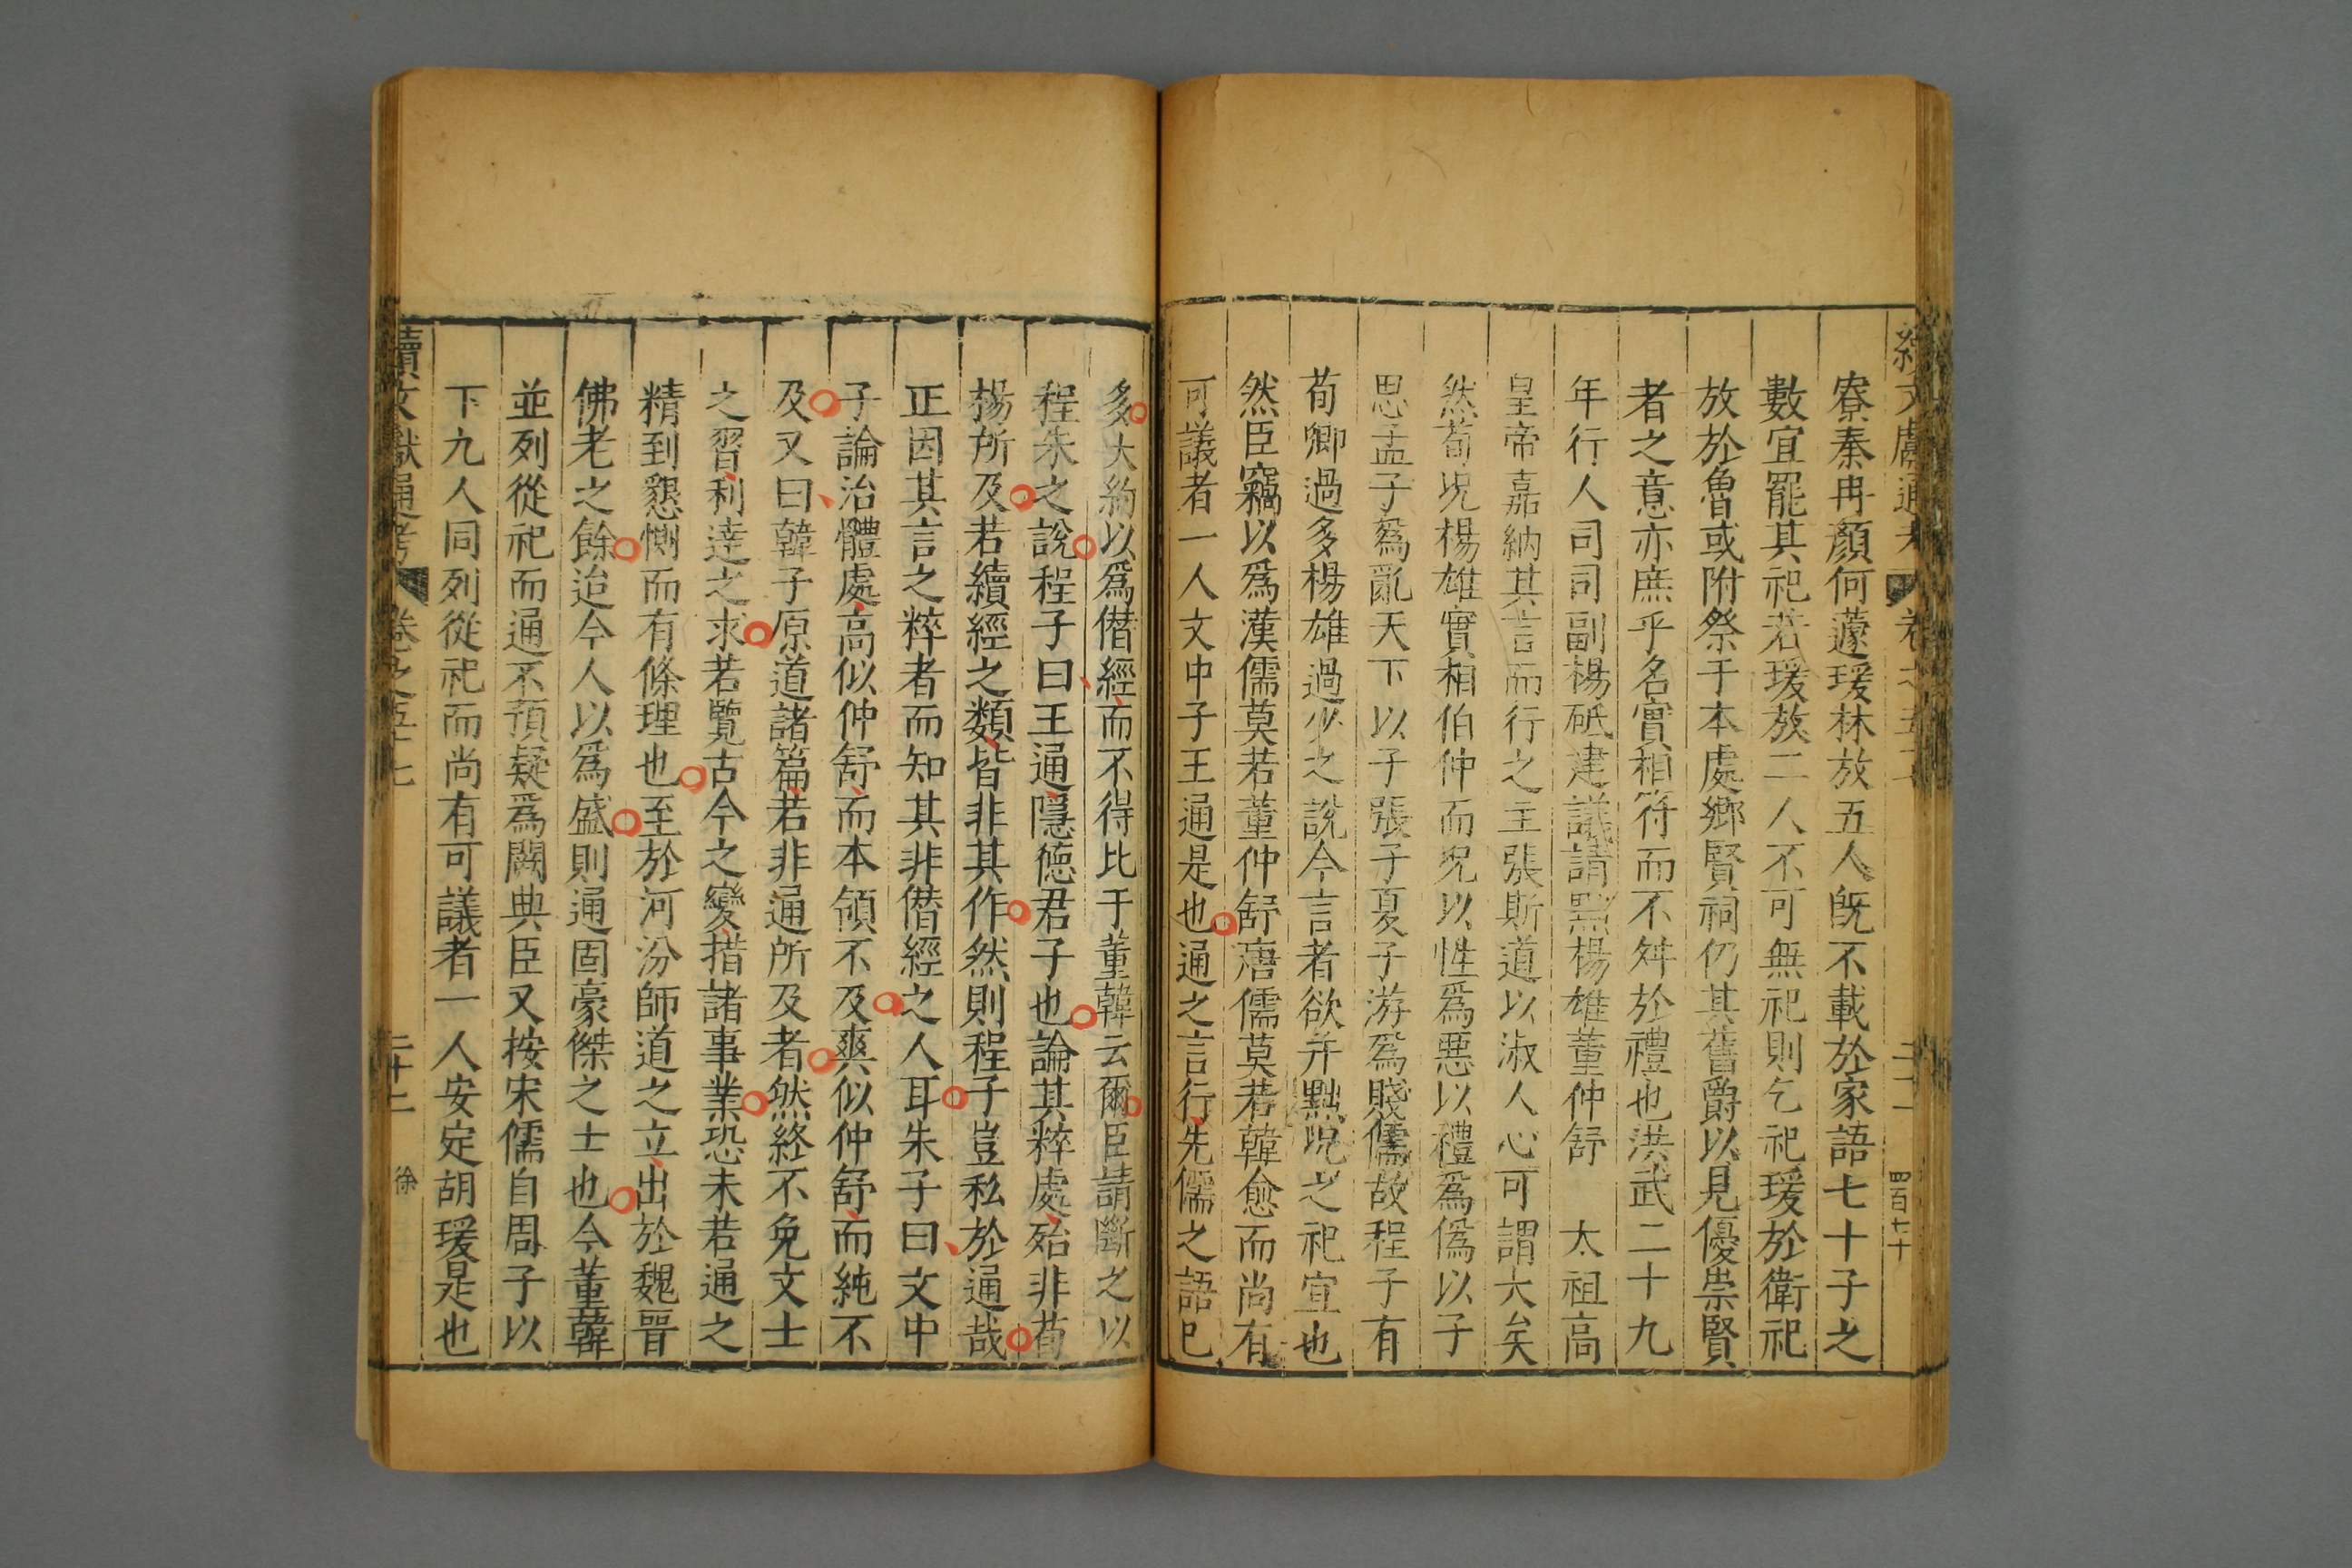 寮秦冉顏何蘧瑗林放五人既不載於家語七十子之
數宜罷其祀若瑗放二人不可無祀則乞祀瑗於衛祀
放於魯或附祭于本處鄉賢祠仍其舊爵以見優崇賢
者之意亦庶乎名實相符而不舛於禮也洪武二十九
年行人司司副楊砥建議請黜楊雄董仲舒 太祖高
皇帝嘉納其言而行之主張斯道以淑人心可謂大矣
然荀况楊雄實相伯仲而况以性爲惡以禮爲僞以子
思孟子爲亂天下以子張子夏子游爲賤儒故程子有
荀卿過多楊雄過少之說今言者欲并黜况之祀宜也
然臣竊以爲漢儒莫若董仲舒唐儒莫若韓愈而尚有
可議者一人文中子王通是也通之言行先儒之語已
多大約以爲僣經而不得比于董韓云爾臣請斷之以
程朱之說程子曰王通隱德君子也論其粹處殆非荀
揚所及若續經之類皆非其作然則程子豈私於通哉
正因其言之粹者而知其非僣經之人耳朱子曰文中
子論治體處高似仲舒而本領不及爽似仲舒而純不
及又曰韓子原道諸篇若非通所及者然終不免文士
之習利達之求若覽古今之變措諸事業恐未若通之
精到懇惻而有條理也至於河汾師道之立出於魏晉
佛老之餘迨今人以爲盛則通固豪傑之士也今董韓
並列從祀而通不預疑爲闕典臣又按宋儒自周子以
下九人同列從祀而尚有可議者一人安定胡瑗是也
續文獻通考 卷之五十七 二十二 徐
四百七十